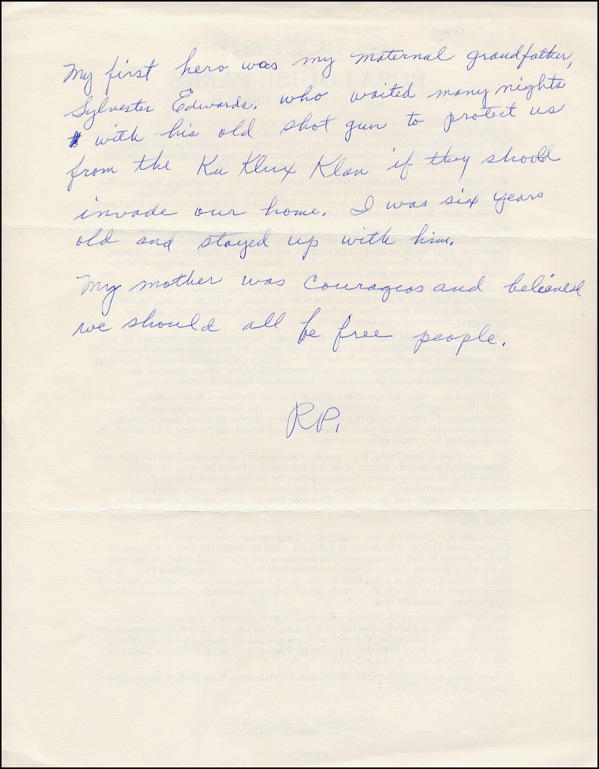 My first hero was my maternal grandfather,
Sylvester Edwards. who waited many nights
with his old shot gun to protect us
from the Ku Klux Klan if they should
invade our home. I was six years
old and stayed up with him.
My mother was Courageos and believed
we should all be free people.
RP.